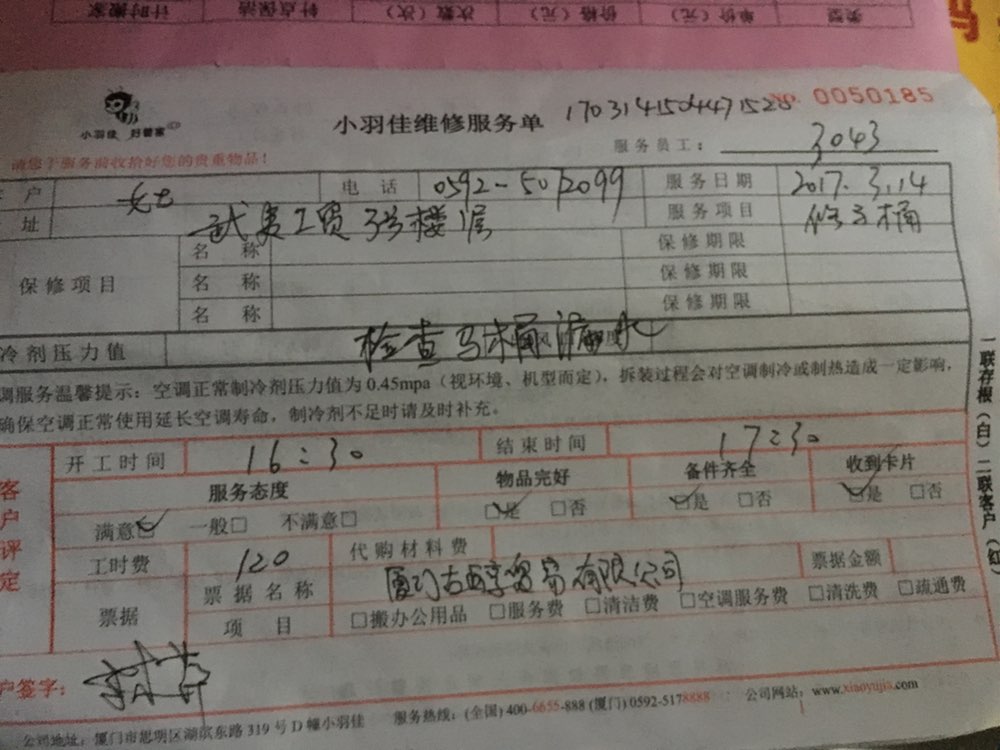 类型 单价（元） 价格（元） 次数（次） 针点保洁 计时搬家
小羽佳 好管家
小羽佳维修服务单 1703141504471528 No. 0050185
请您于服务前收拾好您的贵重物品！
服务员工： 3043
户 女士 电话 0592-5012099 服务日期 2017.3.14
址 工贸3号楼 服务项目 修马桶
保修项目 名称 保修期限
名称 保修期限
名称 保修期限
冷剂压力值 检查马桶漏水
调服务温馨提示：空调正常制冷剂压力值为0.45mpa（视环境、机型而定），拆装过程会对空调制冷或制热造成一定影响，
确保空调正常使用延长空调寿命，制冷剂不足时请及时补充。
一联存根（白）二联客户（红）
客户评定
开工时间 16:30 结束时间 17:30
服务态度 物品完好 备件齐全 收到卡片
满意☑ 一般□ 不满意□ ☑是 □否 ☑是 □否 ☑是 □否
工时费 120 代购材料费
票据 票据名称 厦门古醇贸易有限公司 票据金额
项目 □搬办公用品 □服务费 □清洁费 □空调服务费 □清洗费 □疏通费
户签字：
公司地址：厦门市思明区湖滨东路319号D幢小羽佳 服务热线：(全国) 400-6655-888 (厦门) 0592-5178888 公司网站：www.xiaoyujia.com